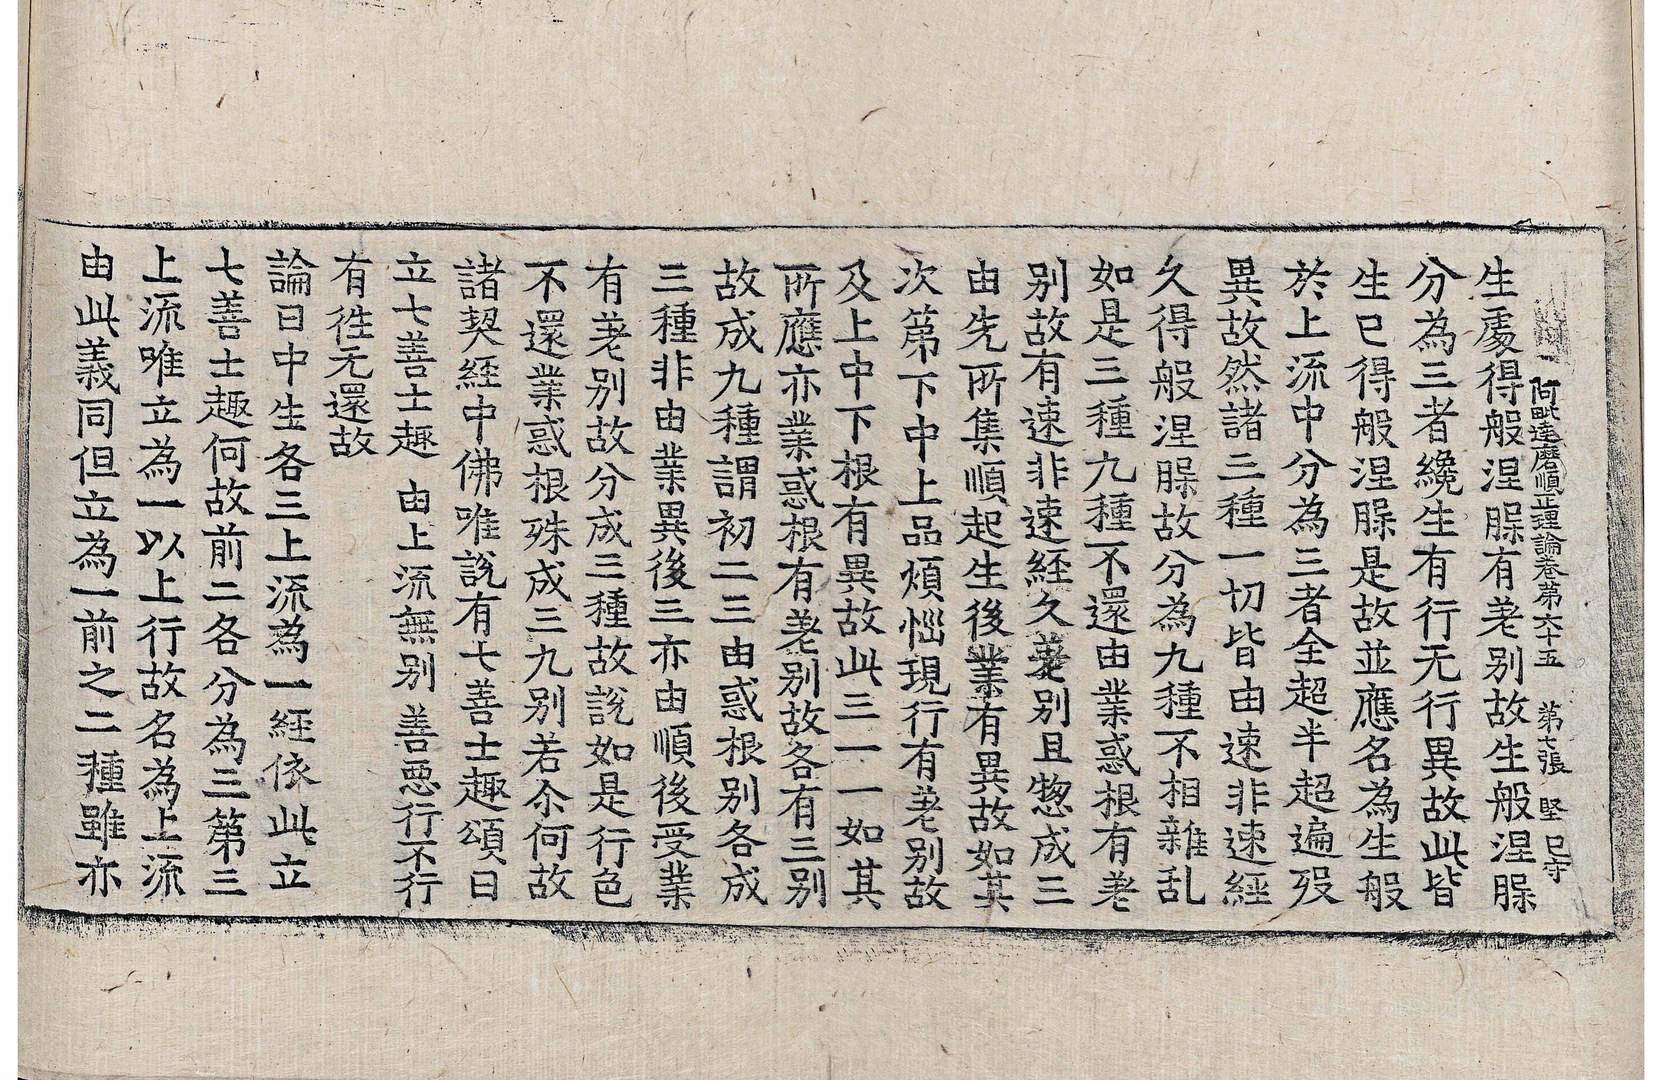 阿毗達磨順正理論卷第六十五 第七張 堅 巳寺
生處得般涅槃有差别故生般涅槃
分為三者纔生有行无行異故此皆
生已得般涅槃是故並應名為生般
於上流中分為三者全超半超遍歿
異故然諸三種一切皆由速非速經
久得般涅槃故分為九種不相雜乱
如是三種九種不還由業惑根有差
别故有速非速經久差别且惣成三
由先所集順起生後業有異故如其
次第下中上品煩惱現行有差别故
及上中下根有異故此三一一如其
所應亦業惑根有差别故各有三别
故成九種謂初二三由惑根别各成
三種非由業異後三亦由順後受業
有差别故分成三種故說如是行色
不還業惑根殊成三九别若尒何故
諸契經中佛唯說有七善士趣頌曰
立七善士趣 由上流無别 善惡行不行
有徃无還故
論曰中生各三上流為一經依此立
七善士趣何故前二各分為三第三
上流唯立為一以上行故名為上流
由此義同但立為一前之二種雖亦